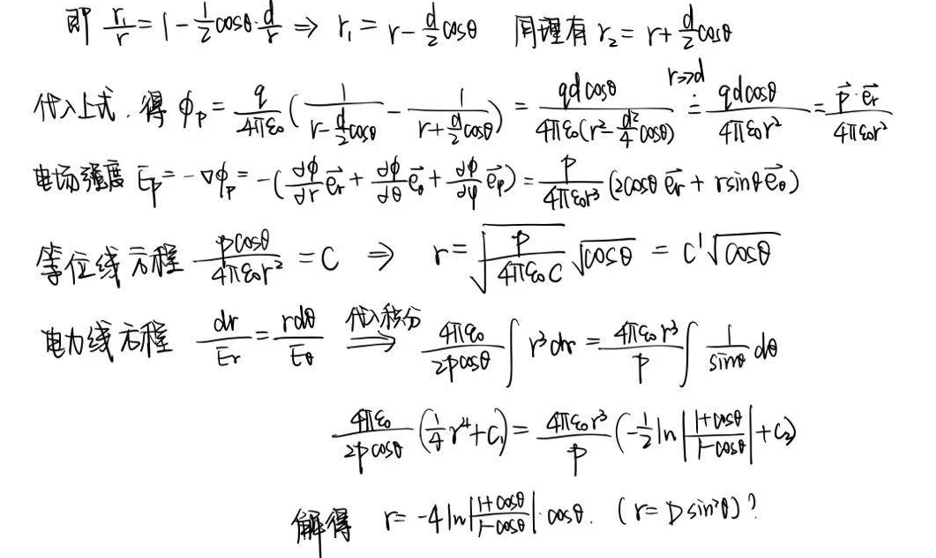 即 r₁/r = 1 - 1/2 cosθ·d/r ⇒ r₁ = r - d/2 cosθ 同理有 r₂ = r + d/2 cosθ
代入上式, 得 ϕ_P = q/4πε₀ (1/(r - d/2 cosθ) - 1/(r + d/2 cosθ)) = qdcosθ/(4πε₀(r² - d²/4 cosθ)) ≐(r>>d) qdcosθ/4πε₀r² = p⃗·e⃗r/4πε₀r²
电场强度 E_P = -∇ϕ_P = -(∂ϕ/∂r e⃗r + ∂ϕ/∂θ e⃗θ + ∂ϕ/∂φ e⃗φ) = p/4πε₀r³ (2cosθ e⃗r + rsinθ e⃗θ)
等位线方程 pcosθ/4πε₀r² = C ⇒ r = √(p/4πε₀C) √cosθ = C'√cosθ
电力线方程 dr/Er = rdθ/Eθ ⇒(代入积分) 4πε₀/2pcosθ ∫ r³dr = 4πε₀r³/p ∫ 1/sinθ dθ
4πε₀/2pcosθ (1/4 r⁴ + C₁) = 4πε₀r³/p (-1/2 ln|(1+cosθ)/(1-cosθ)| + C₂)
解得 r = -4 ln|(1+cosθ)/(1-cosθ)|·cosθ. (r = D sin²θ)?